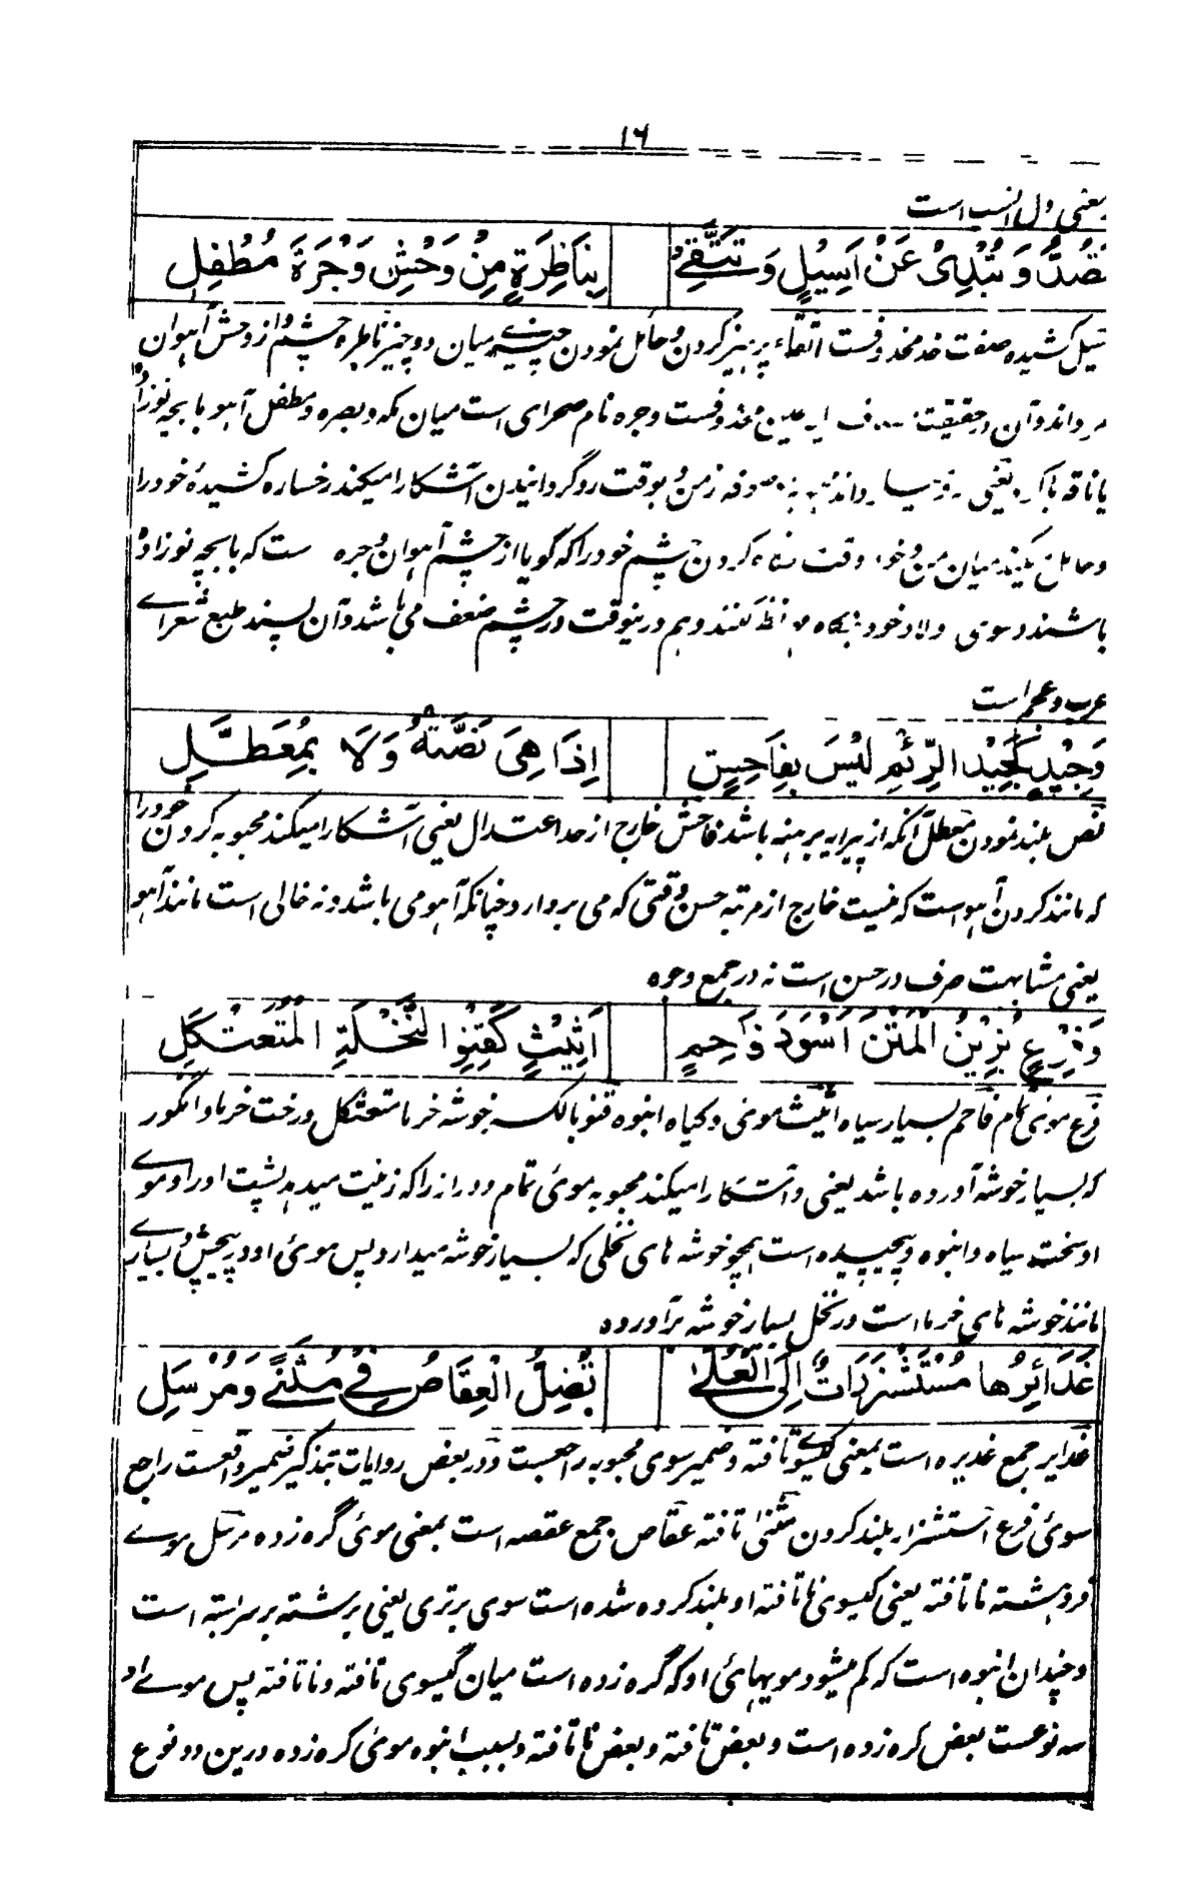 ۱۶
یعنی اول انسب است
تَصُدُّ وَ تُبْدِیْ عَنْ اَسِیْلٍ وَ تَتَّقِیْ بِنَاظِرَةٍ مِنْ وَحْشِ وَجْرَةَ مُطْفِلِ
کشیده صفت خد محذوفست اتقاء پرهیز کردن و حائل نمودن چیزی میان دو چیز ناظره چشم از وحش آهوان
وجره نام صحرای است میان مکه و بصره و مطفل آهو با بچه نوزاد
یا ناقه یعنی بوقت رو گردانیدن آشکارا میکند رخساره کشیدهٔ خود را
میان من و خود وقت کردن چشم خود را که گویا از چشم آهوان وجره ست که با بچه نوزاد
باشند و سوی ولاد خود کنند و هم درینوقت در چشم ضعف می باشد و آن پسند طبع شعرای
عرب و عجم است
وَجِیْدٍ کَجِیْدِ الرِّئْمِ لَیْسَ بِفَاحِشٍ اِذَا هِیَ نَصَّتْهُ وَلَا بِمُعَطَّلِ
نص بلند نمودن معطل آنکه از پیرایه برهنه باشد فاحش خارج از حد اعتدال یعنی آشکارا میکند محبوبه گردن خود را
که مانند گردن آهوست که نیست خارج از مرتبه حسن وقتی که می بردارد چنانکه آهو می باشد و نه خالی است مانند آهو
یعنی مشابهت صرف در حسن است نه در جمیع وجوه
وَفَرْعٍ یُزِیْنُ الْمَتْنَ اَسْوَدَ فَاحِمٍ اَثِیْثٍ کَقِنْوِ النَّخْلَةِ الْمُتَعَثْکِلِ
فرع موی تمام فاحم بسیار سیاه اثیث موئی و گیاه انبوه قنو بالکسر خوشه خرما متعثکل درخت خرما و انگور
که بسیار خوشه آورده باشد یعنی و آشکارا میکند محبوبه موئی تمام و دراز را که زینت میدهد پشت او را و موے
او سخت سیاه و انبوه و پیچیده است همچو خوشه های نخلی که بسیار خوشه میدارد پس موئی او در پیچش و بسیاری
مانند خوشه های خرما است در نخل بسیار خوشه برآورده
غَدَائِرُهَا مُسْتَشْزِرَاتٌ اِلَی الْعُلٰی تَضِلُّ الْعِقَاصُ فِیْ مُثَنًّی وَمُرْسَلِ
غدایر جمع غدیره است بمعنی گیسوی تافته و ضمیر سوی محبوبه راجعست و در بعض روایات بتذکیر ضمیر واقعست راجع
سوئی فرع استشزار بلند کردن مثنی تافته عقاص جمع عقصه است بمعنی موئی گره زده مرسل موے
فروهشته نا تافته یعنی گیسوی تافته او بلند کرده شده است سوی برتری یعنی برشته بر سر بسته است
و چندان انبوه است که گم میشود مویهائی او که گره زده است میان گیسوی تافته و نا تافته پس موے او
سه نوعست بعض گره زده است و بعض تافته و بعض نا تافته و بسبب انبوه موئی گره زده درین دو نوع